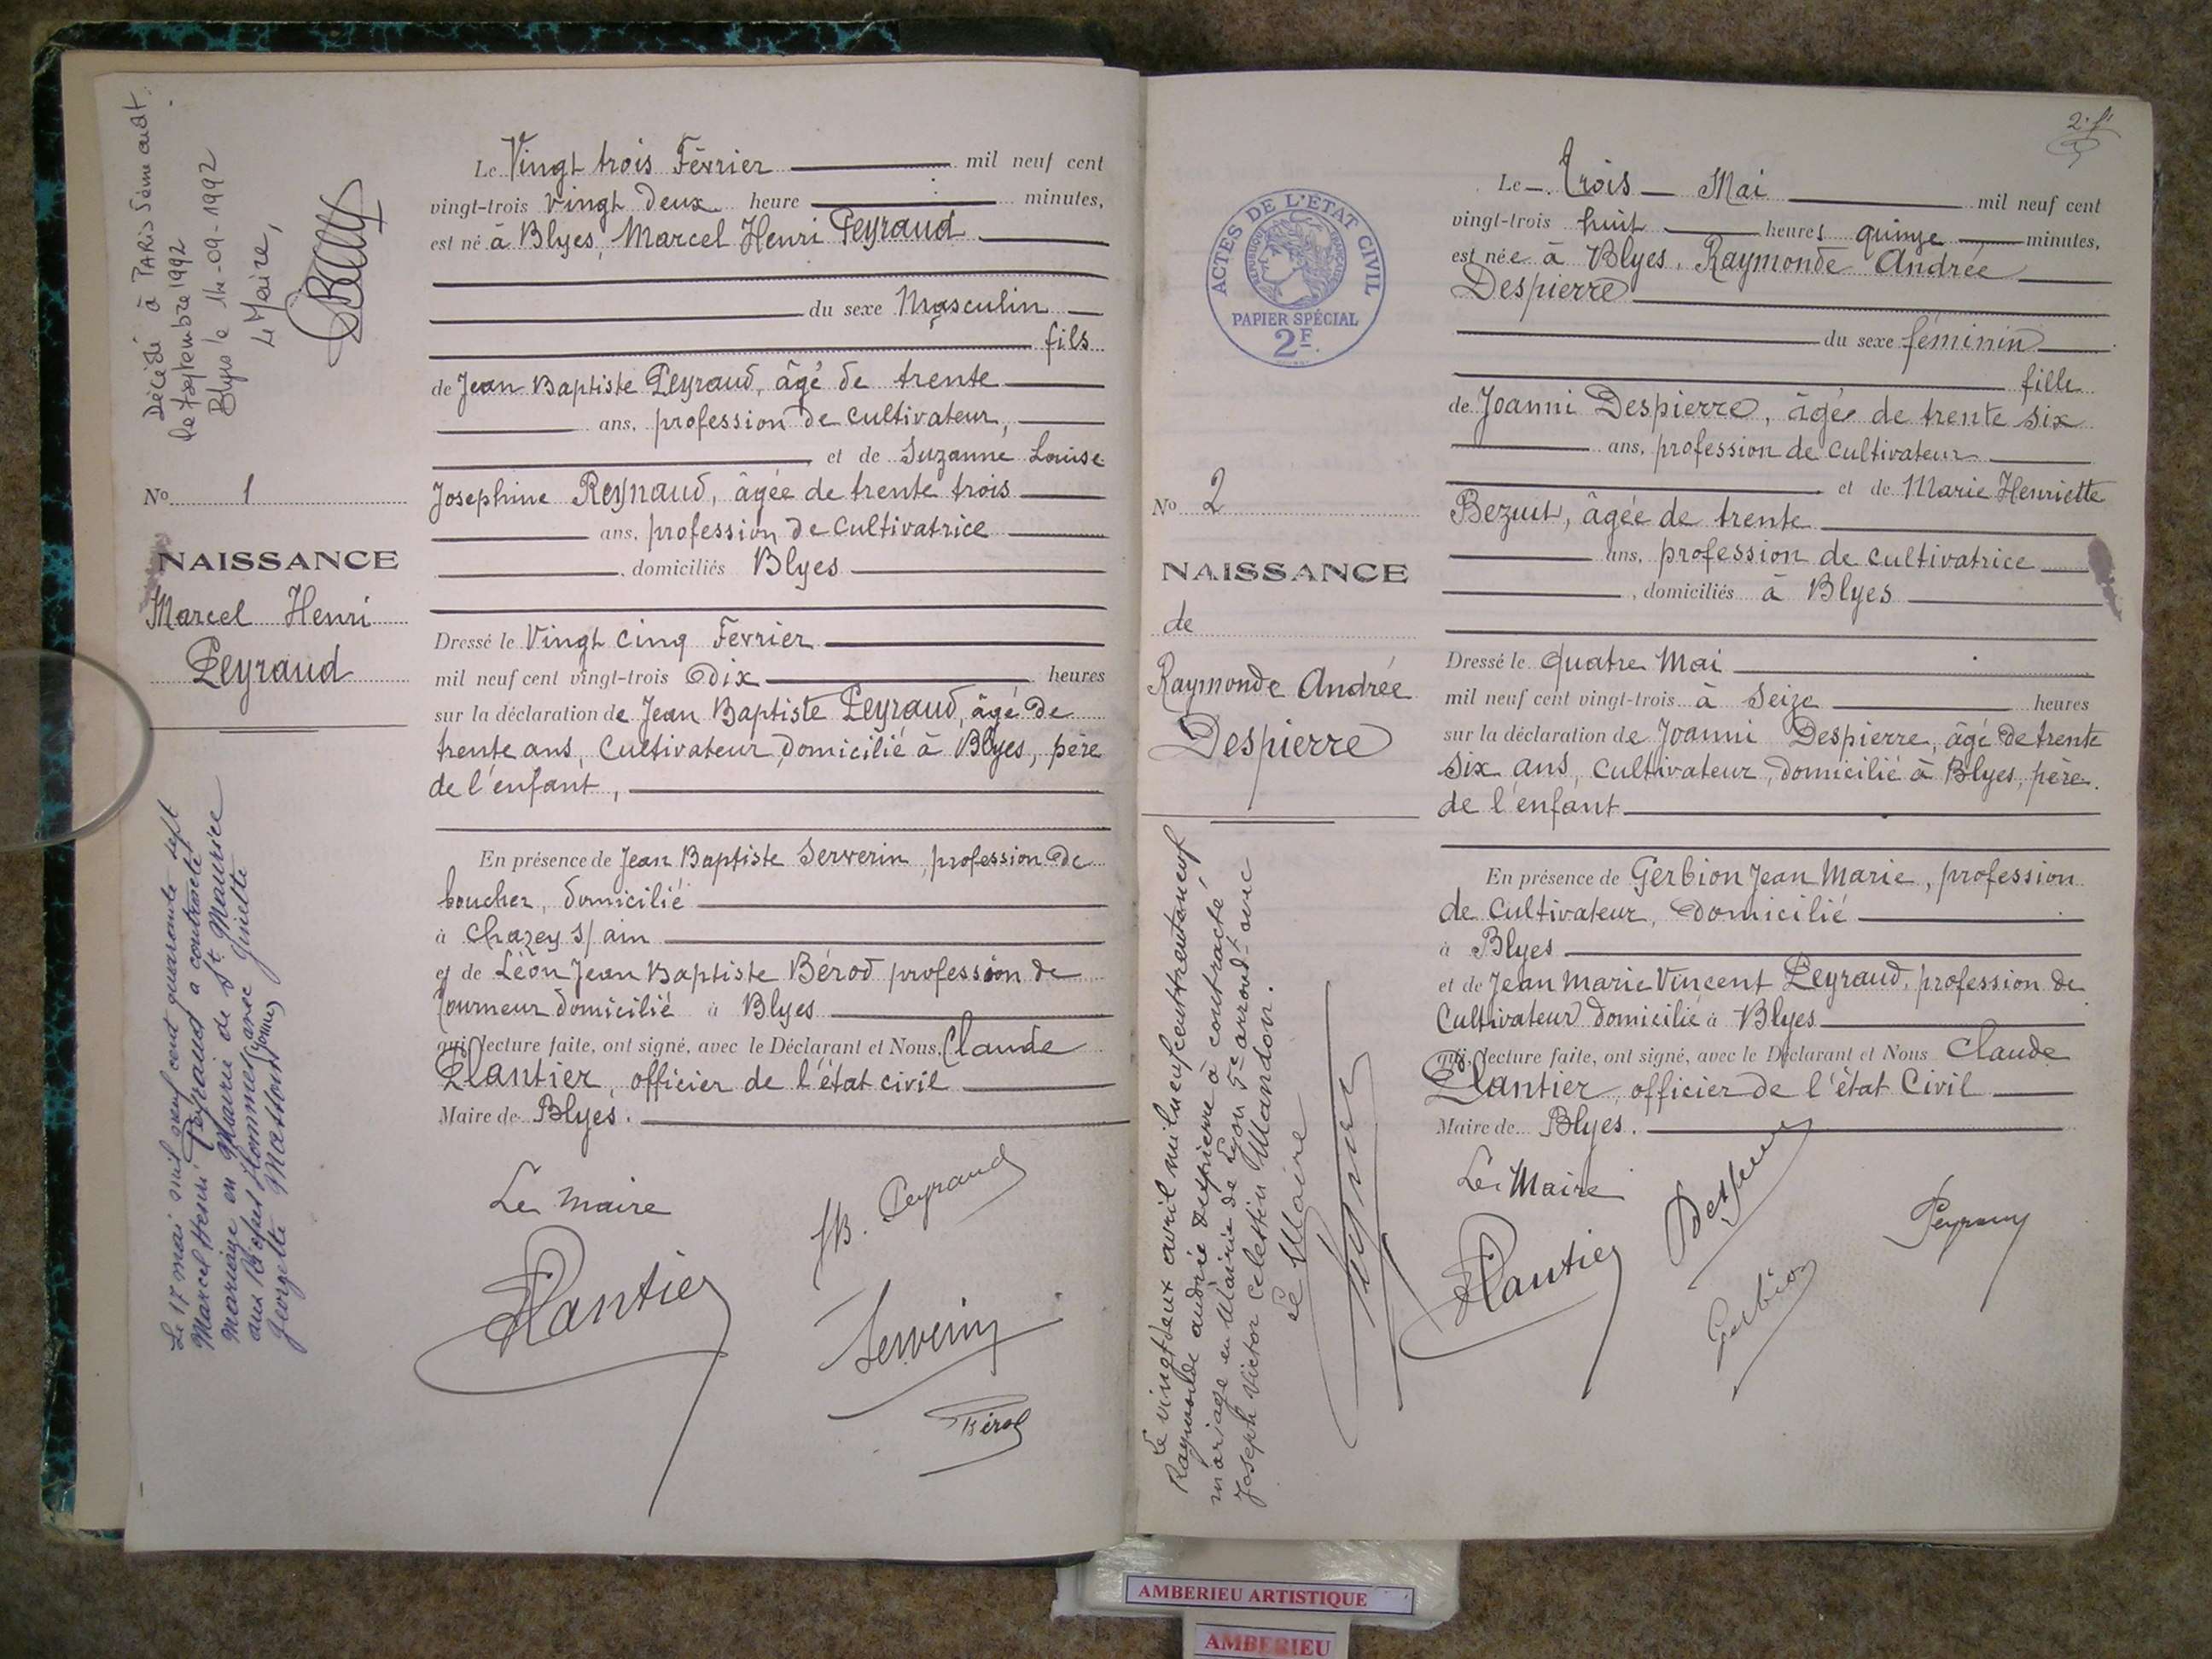 Décédé à PARIS 5ème arrdt.
le 7 septembre 1992
Blyes le 14-09-1992
Le Maire,
No 1
NAISSANCE
Marcel Henri
Peyraud
Le 17 mai mil neuf cent quarante sept
Marcel Henri Peyraud a contracté
mariage en Mairie de St. Maurice
aux Riches Hommes avec Ginette
Georgette Masson (Yonne)
Le Vingt trois Février mil neuf cent
vingt-trois vingt deux heure minutes,
est né à Blyes, Marcel Henri Peyraud
du sexe Masculin
fils
de Jean Baptiste Peyraud, âgé de trente
ans, profession de cultivateur,
et de Suzanne Louise
Josephine Reynaud, âgée de trente trois
ans, profession de cultivatrice
, domiciliés Blyes
Dressé le Vingt cinq Fevrier
mil neuf cent vingt-trois Dix heures
sur la déclaration de Jean Baptiste Peyraud, âgé de
trente ans, Cultivateur, domicilié à Blyes, père
de l'enfant,
En présence de Jean Baptiste Serverin, profession de
boucher, domicilié
à Chazey s/ ain
et de Léon Jean Baptiste Bérod profession de
Tourneur domicilié à Blyes
qui, lecture faite, ont signé, avec le Déclarant et Nous, Claude
Plantier, officier de l'état civil
Maire de Blyes.
Le maire
JB. Peyraud
Plantier
Serverin
Bérod
2e ft
ACTES DE L'ETAT CIVIL
REPUBLIQUE FRANÇAISE
PAPIER SPÉCIAL
2F.
No 2
NAISSANCE
de
Raymonde Andrée
Despierre
Le vingt deux avril mil neuf cent trente neuf
Raymonde andrée Despierre à contracté
mariage en Mairie de Lyon 5e arrond-t avec
Joseph Victor Celestin Mandon.
Le Maire
Le Trois Mai mil neuf cent
vingt-trois huit heures quinze minutes,
est née à Blyes, Raymonde Andrée
Despierre
du sexe féminin
fille
de Joanni Despierre, âgé de trente six
ans, profession de cultivateur
et de Marie Henriette
Bezuit, âgée de trente
ans, profession de cultivatrice
, domiciliés à Blyes
Dressé le quatre Mai
mil neuf cent vingt-trois à Seize heures
sur la déclaration de Joanni Despierre, âgé de trente
six ans, Cultivateur, domicilié à Blyes, père
de l'enfant
En présence de Gerbion Jean Marie, profession
de Cultivateur, Domicilié
à Blyes
et de Jean Marie Vincent Peyraud, profession de
Cultivateur Domicilié à Blyes
qui, lecture faite, ont signé, avec le Déclarant et Nous Claude
Plantier, officier de l'état Civil
Maire de Blyes.
Le Maire
Despierre
Peyraud
Plantier
Gerbion
AMBERIEU ARTISTIQUE
AMBERIEU